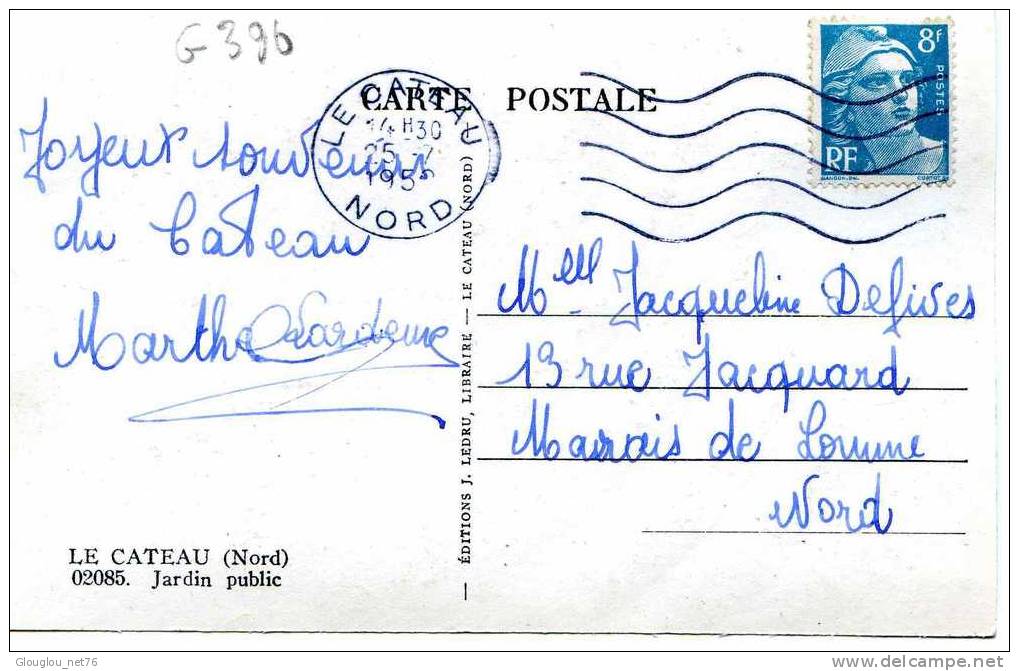 G 396
CARTE POSTALE
LE CATEAU
14 H 30
25 - 7
195
NORD
8F
POSTES
RF
Joyeux souvenir
du Cateau
Marthe
Mell Jacqueline Defives
13 rue Jacquard
Marais de Lomme
Nord
— ÉDITIONS J. LEDRU, LIBRAIRE — LE CATEAU (NORD)
LE CATEAU (Nord)
02085. Jardin public
Glouglou_net76
delcampe.net